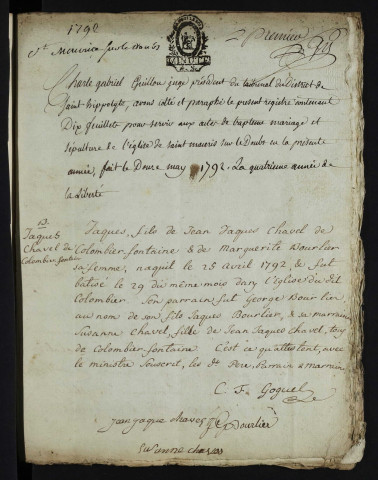 1792
2 Premier
St Maurice sur le Doubs
Charle gabriel Guillou juge président du tribunal du District de
Saint-hippolyte, avons coté et paraphé le present registre contenant
Dix feuillets pour servir aux actes de bapteme mariage et
sépulture de l'église de saint mauris sur le Doubt en la presente
année, fait le Douze may 1792. La quatrieme année de
la Liberté
13.
Jaques
Chavel de
Colombier-fontaine
Jaques, fils de Jean Jaques Chavel de
Colombier-fontaine & de Marguerite Bourlier
sa femme, naquit le 25 avril 1792 & fut
batisé le 29 du même mois dans l'Eglise du dit
Colombier Son parrain fut George Bourlier
au nom de son fils Jaques Bourlier, & sa marraine
Susanne Chavel, fille de Jean Jaques Chavel, tous
de Colombier-fontaine C'est ce qu'attestent, avec
le ministre Souscrit, les dt Pere, Parrain & marraine
C. F. Goguel
jean jaque chavey G Bourlier
Susanne chavey